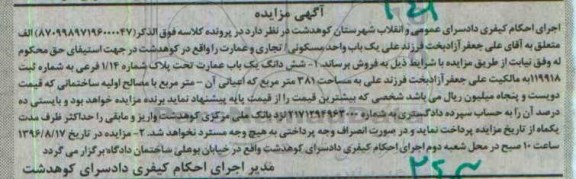 آگهی مزایده
اجرای احکام کیفری دادسرای عمومی و انقلاب شهرستان کوهدشت در نظر دارد در پرونده کلاسه فوق الذکر (۸۷۰۹۹۸۹۷۱۹۶۰۰۰۴۷) الف
متعلق به آقای علی جعفر آزادبخت فرزند علی یک باب واحد مسکونی/ تجاری و عمارت را واقع در کوهدشت در جهت استیفای حق محکوم
له وفق نیابت از طریق مزایده با شرایط ذیل به فروش برساند. ۱- شش دانگ یک باب عمارت تحت پلاک شماره ۱۴/ فرعی به شماره ثبت
۱۱۹۹۱۸ به مالکیت علی جعفر آزادبخت فرزند علی به مساحت ۳۸۱ متر مربع که اعیانی آن – متر مربع با مصالح اولیه ساختمانی که قیمت
دویست و پنجاه میلیون ریال می باشد شخصی که بیشترین قیمت را از قیمت پایه پیشنهاد نماید برنده مزایده خواهد بود و بایستی ده
درصد آن را به حساب سپرده دادگستری به شماره ۲۱۷۱۲۹۶۹۶۳۰۰۰ نزد بانک ملی مرکزی کوهدشت واریز و مابقی را حداکثر ظرف مدت
یکماه از تاریخ مزایده پرداخت نماید و در صورت انصراف وجه پرداختی به هیچ وجه مسترد نخواهد شد. ۲- مزایده در تاریخ ۱۳۹۶/۸/۱۷
ساعت ۱۰ صبح در محل شعبه دوم اجرای احکام کیفری دادسرای کوهدشت واقع در خیابان بوعلی ساختمان دادگاه برگزار می گردد
مدیر اجرای احکام کیفری دادسرای کوهدشت